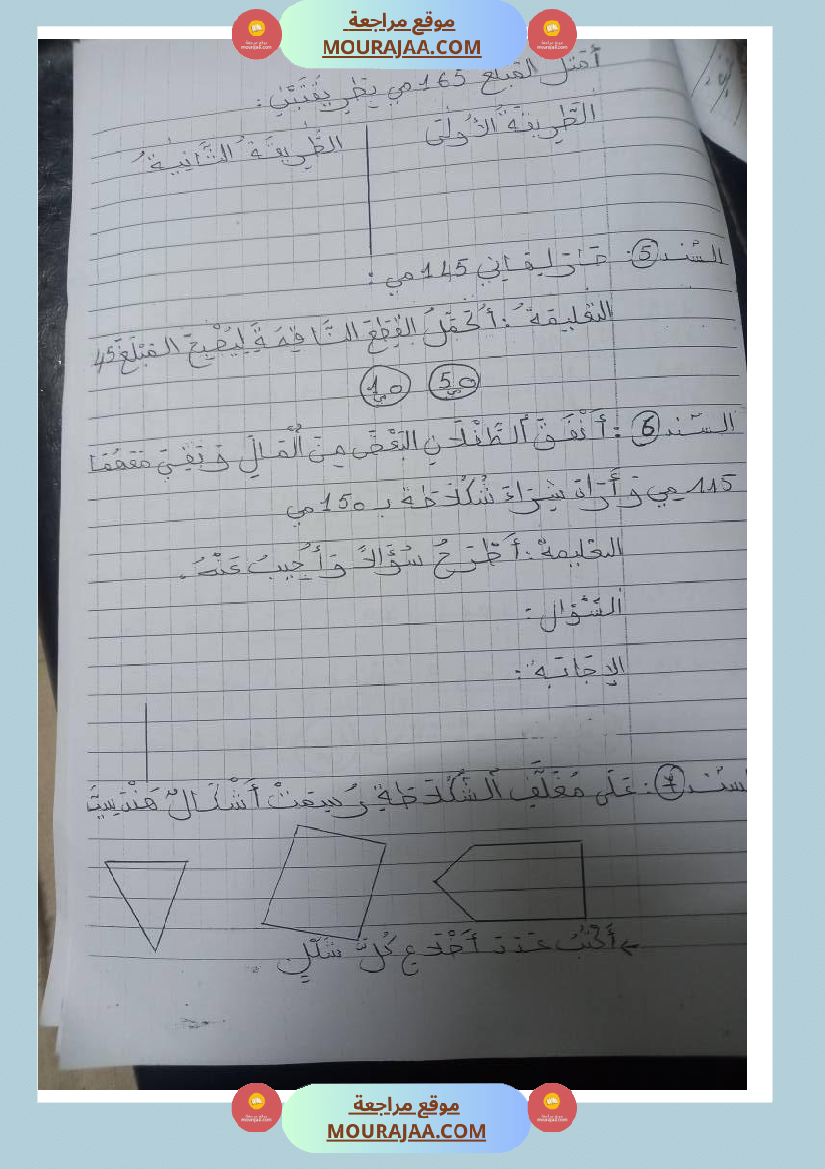 موقع مراجعة
MOURAJAA.COM
أُمَثِّلُ المَبْلَغَ 165 مي بِطَرِيقَتَيْنِ :
الطَّرِيقَةُ الأُولَى
الطَّرِيقَةُ الثَّانِيَةُ
السّند 5 : 145 مي :
التعليمة : أُكَمِّلُ القِطَعَ النَّاقِصَةَ لِيُصْبِحَ المَبْلَغُ 45
50 مي 10 مي
السّند 6 : أَنْفَقَ الطِّفْلَانِ البَعْضَ مِنَ الْمَالِ وَ بَقِيَ مَعَهُمَا
115 مي وَ أَرَادَ شِرَاءَ شُكُلَاطَة بـ 150 مي
التعليمة : أَطْرَحُ سُؤَالًا وَ أُجِيبُ عَنْهُ .
السُّؤَال :
الإِجَابَة :
سند 7 : عَلَى مُغَلَّفِ الشُّكُلَاطَةِ رُسِمَتْ أَشْكَالٌ هَنْدَسِيَّة
أَكْتُبُ عَدَدَ أَضْلَاعِ كُلِّ شَكْلٍ .
موقع مراجعة
MOURAJAA.COM